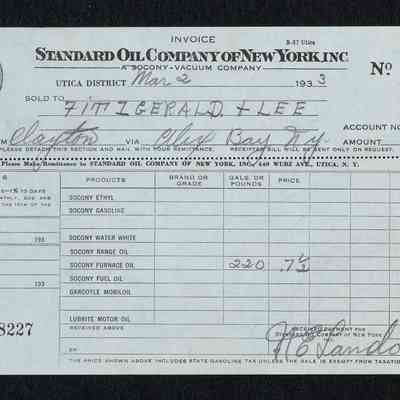 INVOICE
B-87 Utica
STANDARD OIL COMPANY OF NEW YORK, INC
A SOCONY-VACUUM COMPANY
Nº
UTICA DISTRICT Mar 2 1933
SOLD TO
FITZGERALD + LEE
ACCOUNT NO
Clayton VIA Alex Bay N.y. AMOUNT
PLEASE DETACH THIS SECTION AND MAIL WITH YOUR REMITTANCE. RECEIPTED BILL WILL BE SENT ONLY ON REQUEST.
Please Make Remittance to STANDARD OIL COMPANY OF NEW YORK, INC., 449 WURZ AVE., UTICA, N. Y.
PRODUCTS BRAND OR GRADE GALS. OR POUNDS PRICE
SOCONY ETHYL
SOCONY GASOLINE
SOCONY WATER WHITE
193
SOCONY RANGE OIL
SOCONY FURNACE OIL 220 .7½
SOCONY FUEL OIL
193
GARGOYLE MOBILOIL
LUBRITE MOTOR OIL
8227
RECEIVED ABOVE
RECEIVED PAYMENT FOR
STANDARD OIL COMPANY OF NEW YORK
BY
THE PRICE ABOVE INCLUDES STATE GASOLINE TAX UNLESS THE SALE IS EXEMPT FROM TAXATION